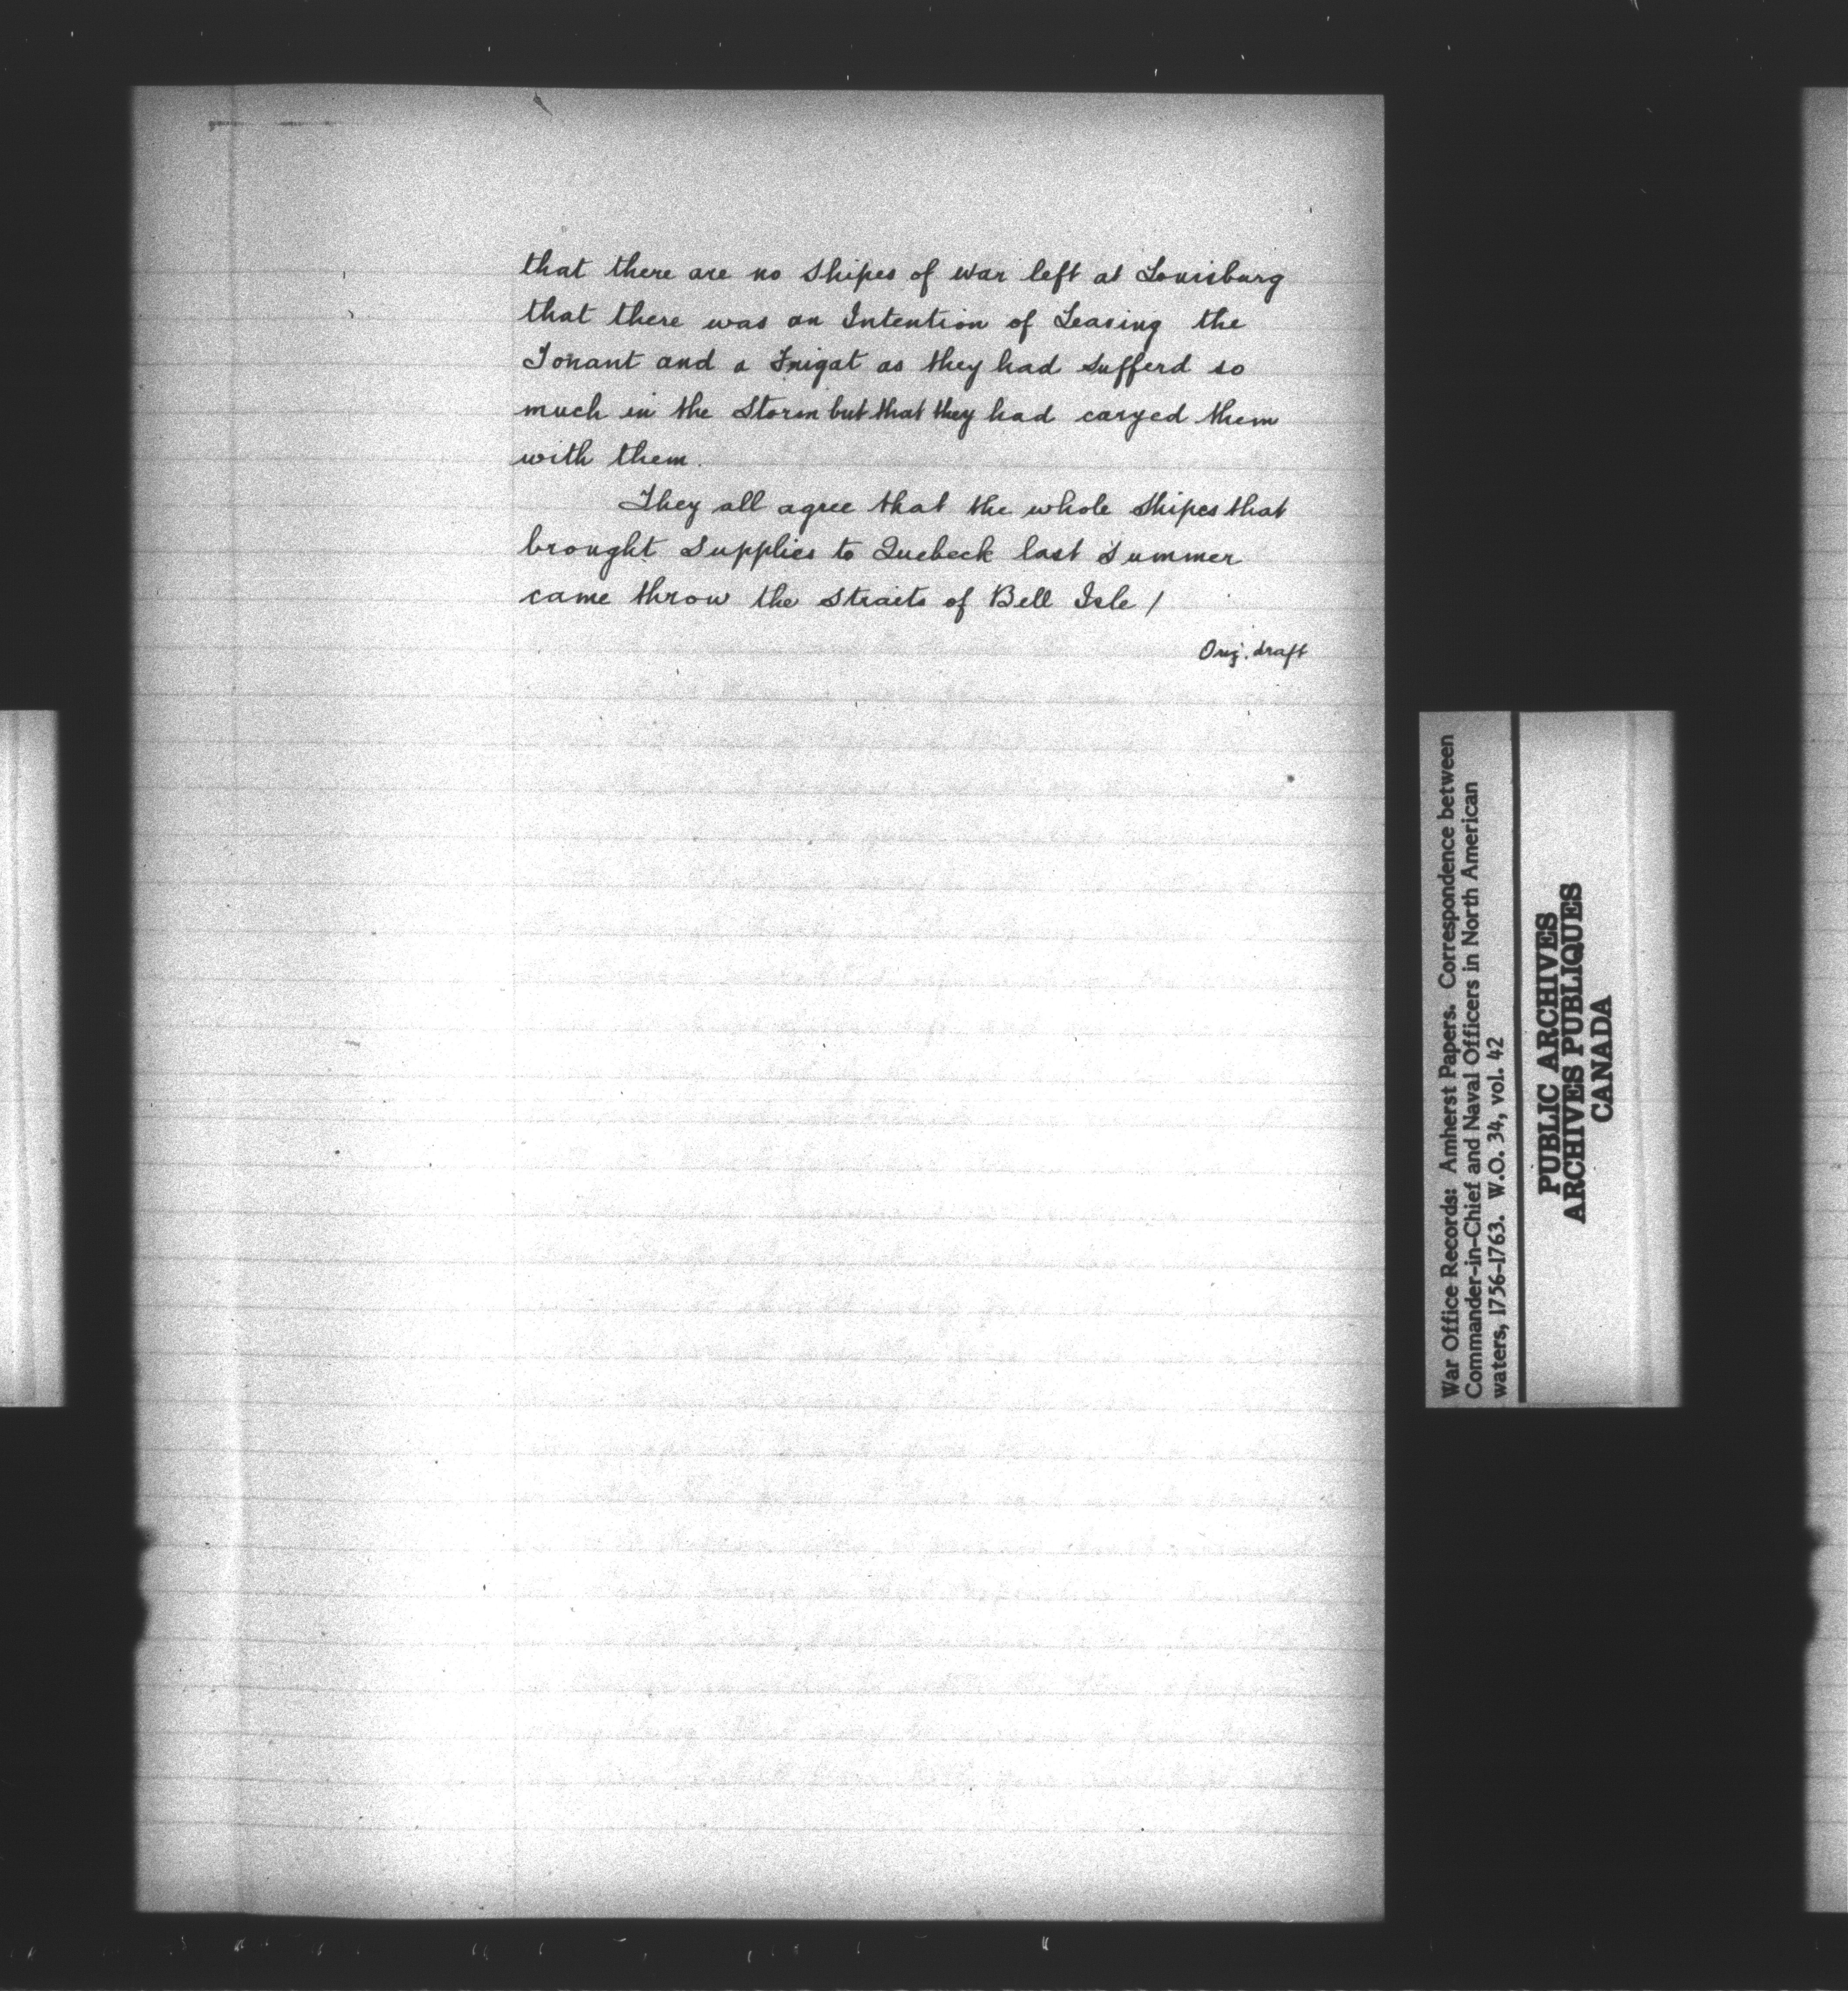 that there are no Shipes of War left at Louisburg
that there was an Intention of Leaving the
Tonant and a Frigat as they had Sufferd so
much in the Storm but that they had caryed them
with them.
They all agree that the whole Shipes that
brought Supplies to Quebeck last Summer
came throw the Straits of Bell Isle /
Orig. draft
War Office Records: Amherst Papers. Correspondence between
Commander-in-Chief and Naval Officers in North American
waters, 1756-1763. W.O. 34, vol. 42
PUBLIC ARCHIVES
ARCHIVES PUBLIQUES
CANADA